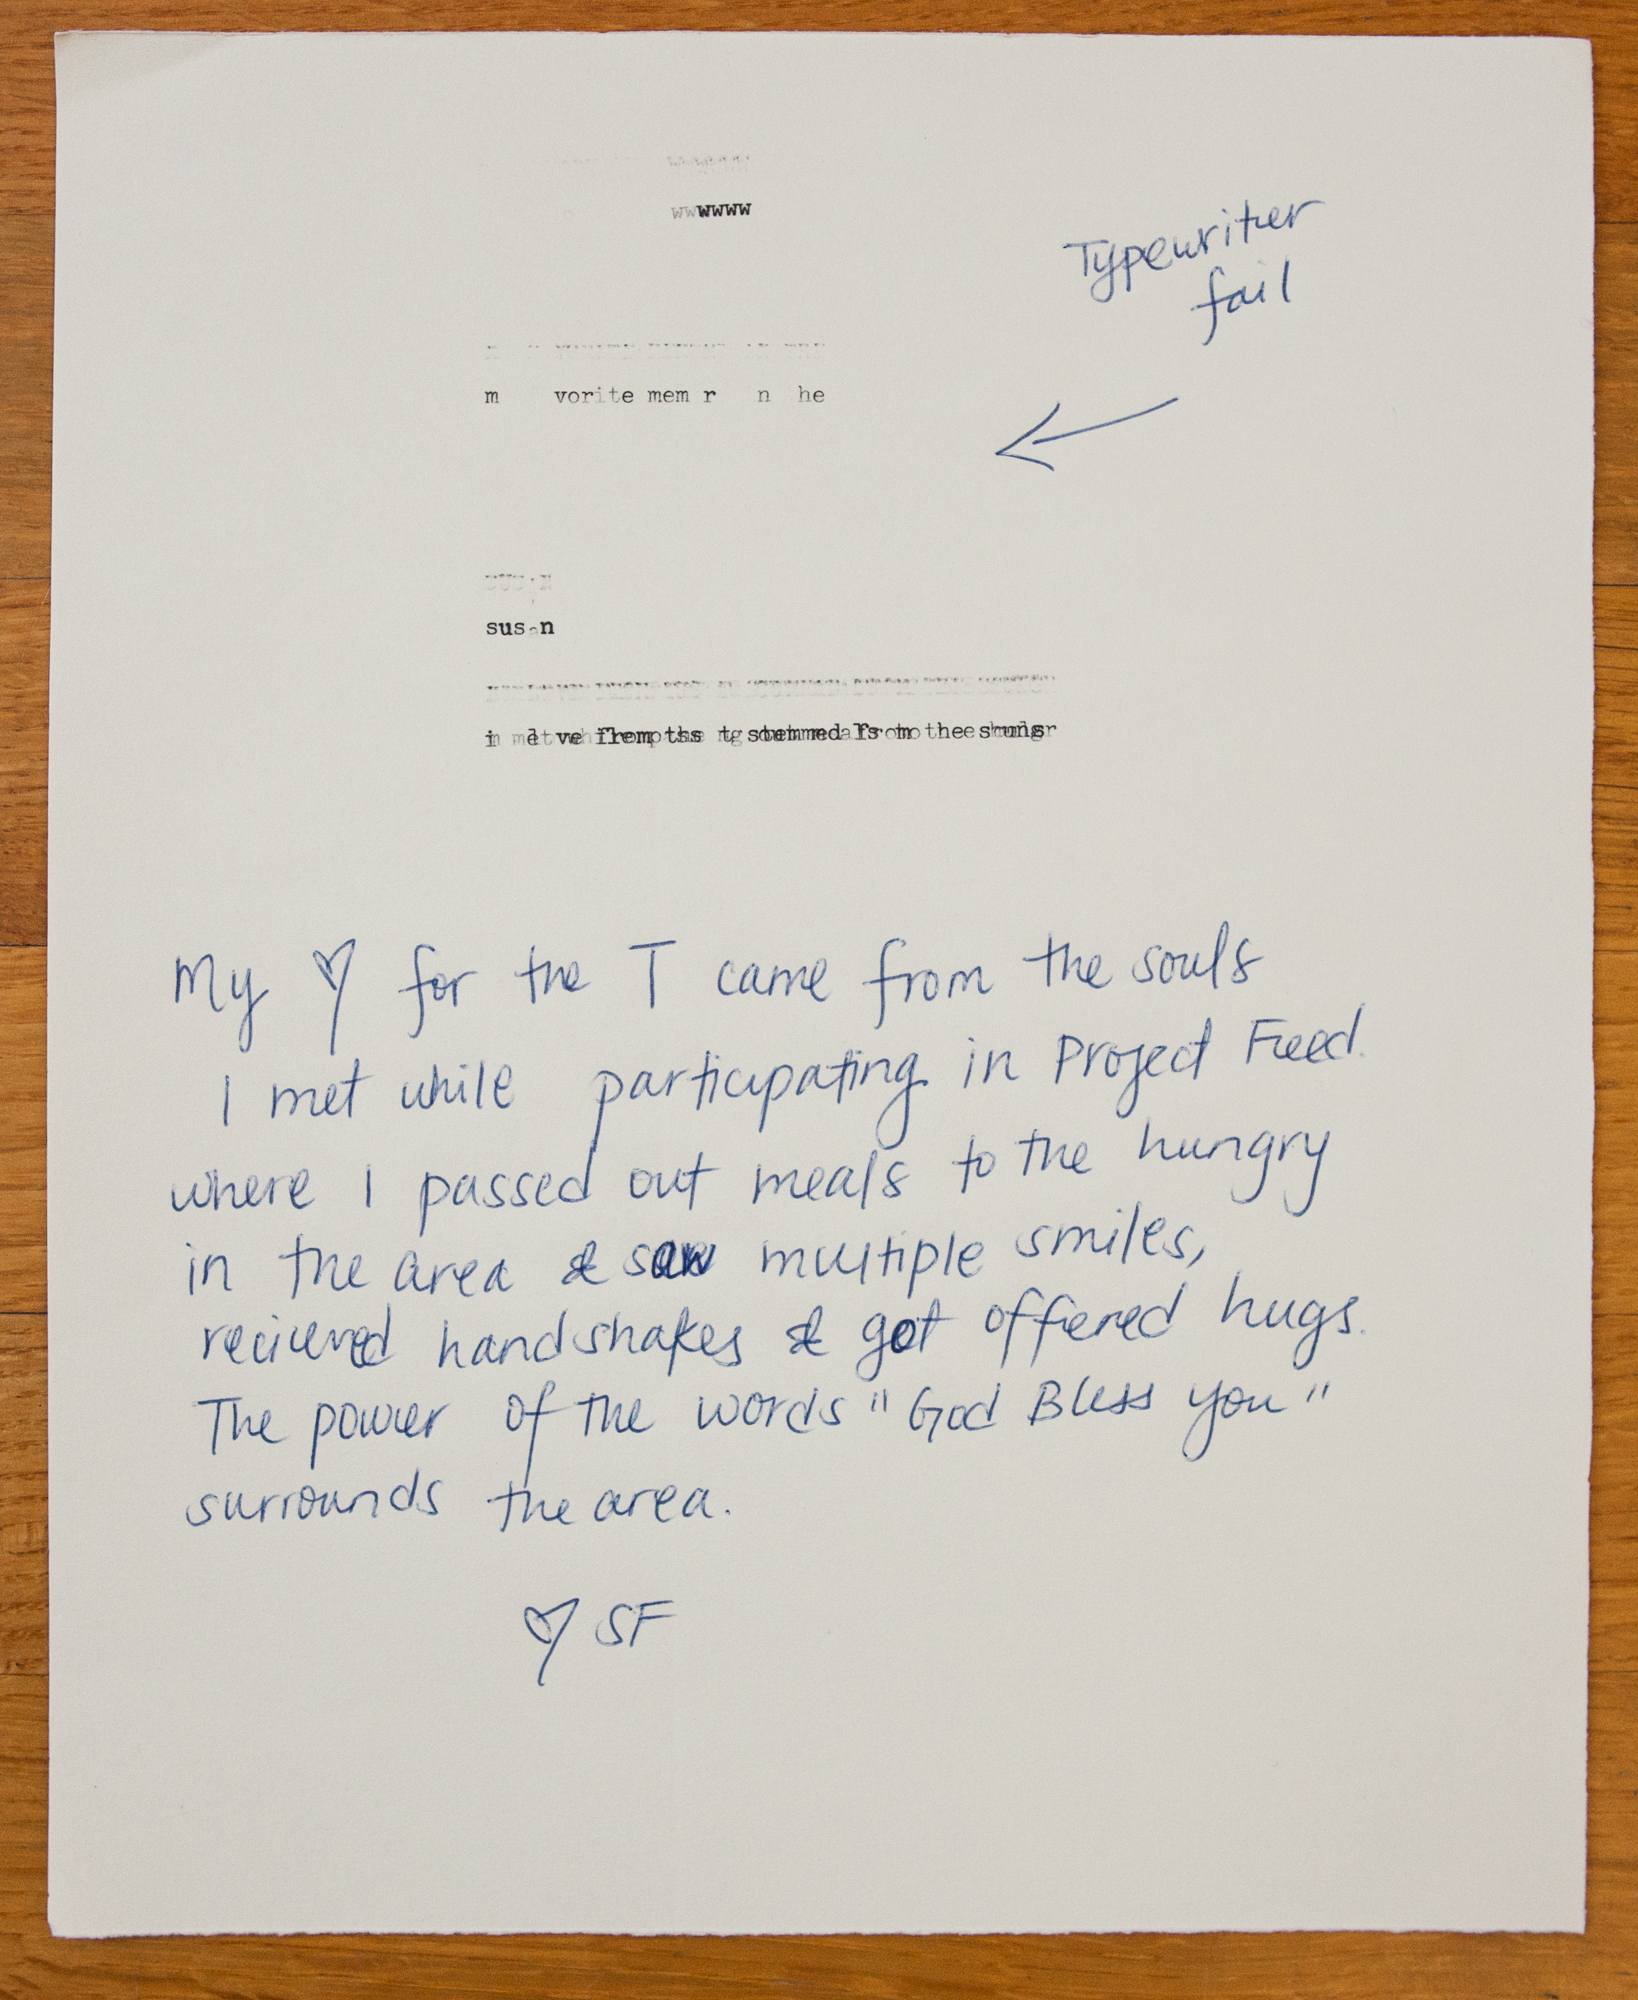 wwwwww
Typewriter
fail
m vorite mem r n he
susan
My ♡ for the T came from the souls
I met while participating in Project Feed.
where I passed out meals to the hungry
in the area & saw multiple smiles,
recieved handshakes & got offered hugs.
The power of the words "God Bless you"
surrounds the area.
♡ SF